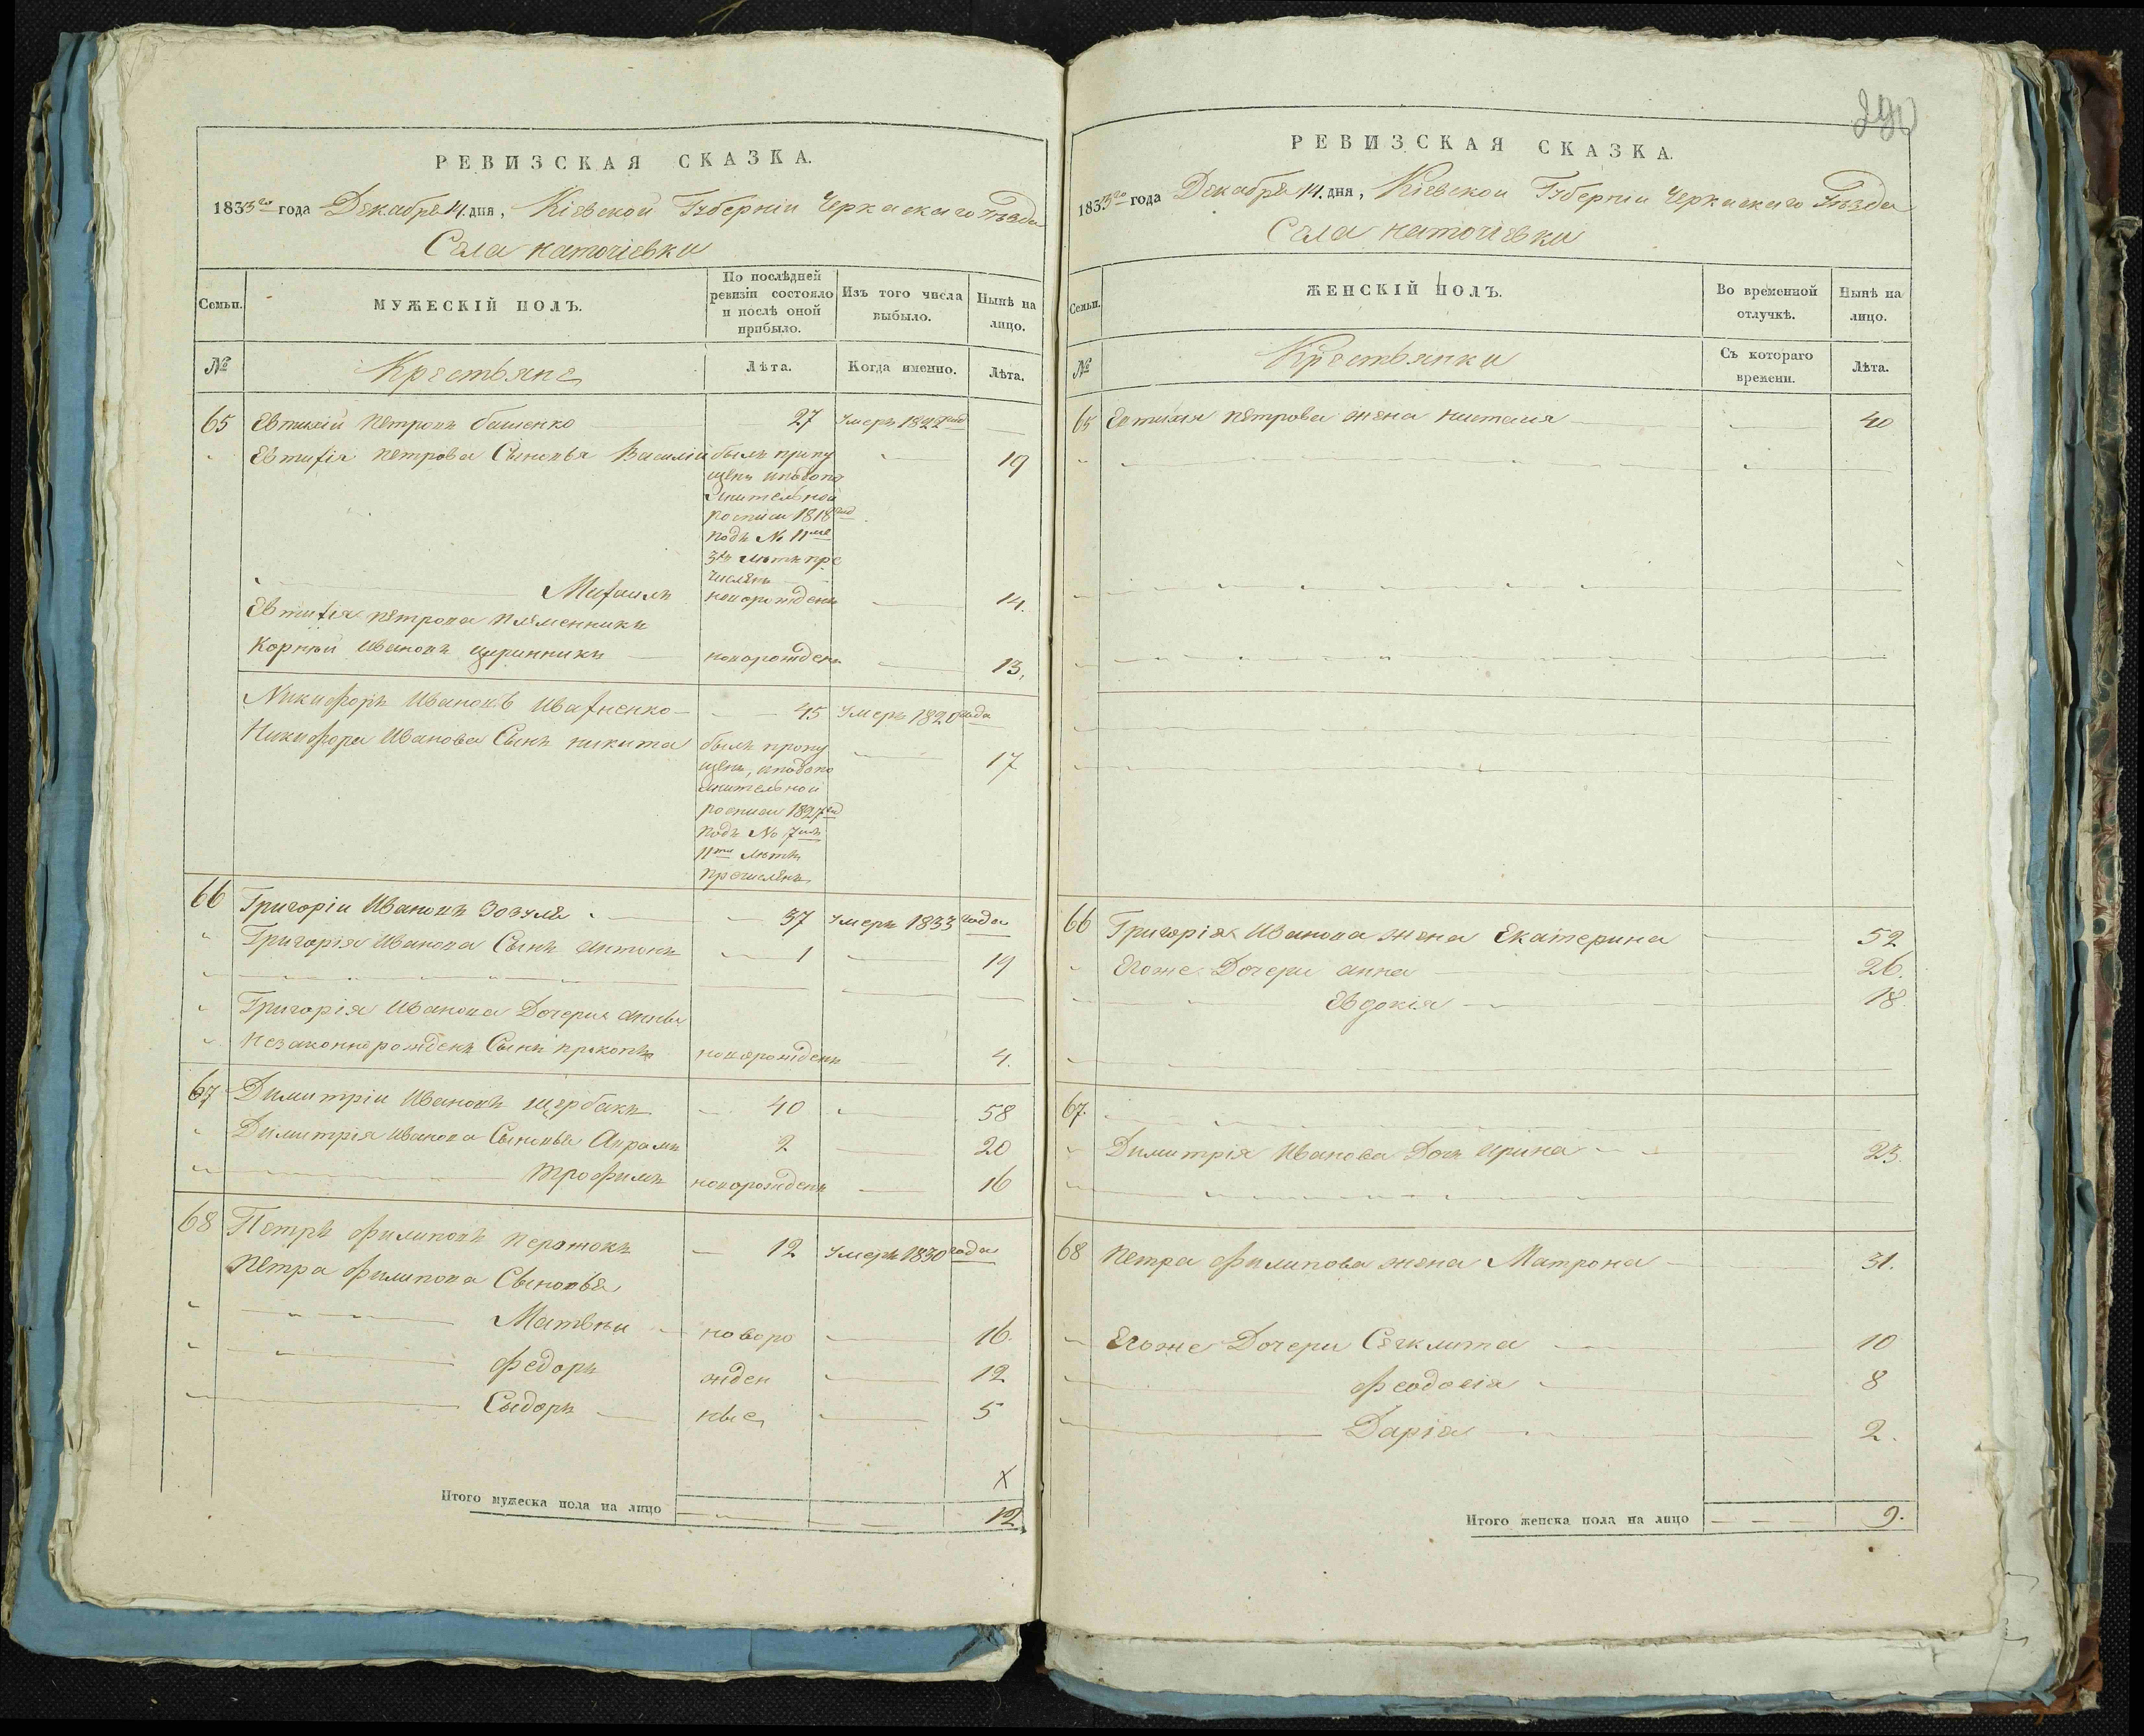 290
РЕВИЗСКАЯ СКАЗКА.
1833го года Декабря 14. дня, Кіевской Губерніи Черкаскаго Уѣзда
Села
Семьи.
МУЖЕСКІЙ ПОЛЪ.
По послѣдней ревизіи состояло и послѣ оной прибыло.
Изъ того числа выбыло.
Нынѣ на лицо.
№
Крестьяне
Лѣта.
Когда именно.
Лѣта.
65 Евтихій Петровъ 27 Умеръ 1822 год
Евтихія Петрова Сыновья Василій былъ пропу 19
щенъ иподопо
лнительной
росписи 1818 год
подъ № 11мъ
3хъ лѣтъ при
численъ
Михаилъ новорожденъ 14.
Евтихія Петрова племенникъ
Корнѣй Ивановъ новорожденъ 13.
Никифоръ Ивановъ Ивахненко 45 Умеръ 1820 года
Никифора Иванова Сынъ никита былъ пропу 17
щенъ, иподопо
лнительной
росписи 1827 год
подъ № 7мъ
11ти лѣтъ
причисленъ
66 Григоріи Ивановъ Зозуля 37 Умеръ 1833 года
Григорія Иванова Сынъ Антонъ 1 19
Григорія Иванова Дочери Анны
Незаконнорожденъ Сынъ прокопъ новорожденъ 4.
67 Димитріи Ивановъ щербакъ 40 58
Димитрія Иванова Сыновья Аврамъ 2 20
Трофимъ новорожденъ 16
68 Петръ Филиповъ 12 Умеръ 1830 года
Петра Филипова Сыновья
Матвѣи новоро 16.
Федоръ жден 12
Сыдоръ ные 5
X
Итого мужеска пола на лицо 12
РЕВИЗСКАЯ СКАЗКА.
1833го года Декабря 14. дня, Кіевской Губерніи Черкаскаго Уѣзда
Села
Семьи.
ЖЕНСКІЙ ПОЛЪ.
Во временной отлучкѣ.
Нынѣ на лицо.
№
Крестьянки
Съ котораго времени.
Лѣта.
65 Евтихія Петрова жена 40
66 Григорія Иванова жена Екатерина 52
Егоже Дочери анна 26.
Евдокія 18.
67.
Димитрія Иванова Дочь Ирина 23.
68 Петра Филипова жена Матрона 31.
Егоже Дочери 10
Феодосія 8
Дарія 2.
Итого женска пола на лицо 9.